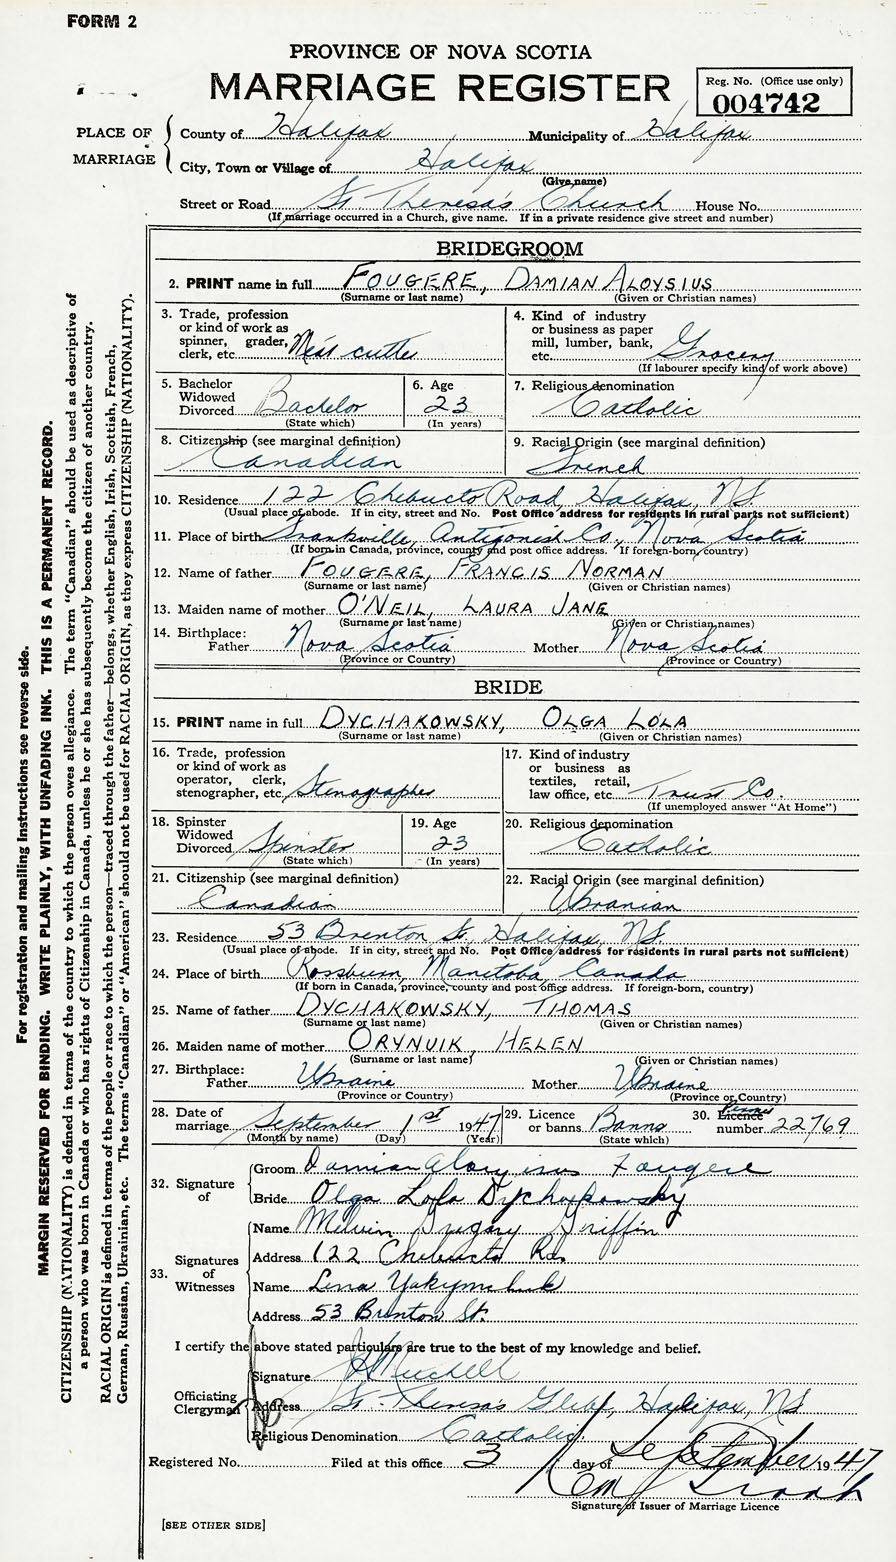 FORM 2
PROVINCE OF NOVA SCOTIA
MARRIAGE REGISTER
Reg. No. (Office use only)
004742
PLACE OF MARRIAGE
County of Halifax Municipality of Halifax
City, Town or Village of Halifax
(Give name)
Street or Road St. Theresa's Church House No.
(If marriage occurred in a Church, give name. If in a private residence give street and number)
BRIDEGROOM
2. PRINT name in full FOUGERE, DAMIAN ALOYSIUS
(Surname or last name) (Given or Christian names)
3. Trade, profession or kind of work as spinner, grader, clerk, etc. Meat cutter
4. Kind of industry or business as paper mill, lumber, bank, etc. Grocery
(If labourer specify kind of work above)
5. Bachelor Widowed Divorced Bachelor
(State which)
6. Age 23
(In years)
7. Religious denomination Catholic
8. Citizenship (see marginal definition)
Canadian
9. Racial Origin (see marginal definition)
French
10. Residence 122 Chebucto Road, Halifax, NS
(Usual place of abode. If in city, street and No. Post Office address for residents in rural parts not sufficient)
11. Place of birth Frankville, Antigonish Co., Nova Scotia
(If born in Canada, province, county and post office address. If foreign-born, country)
12. Name of father FOUGERE, FRANCIS NORMAN
(Surname or last name) (Given or Christian names)
13. Maiden name of mother O'NEIL, LAURA JANE
(Surname or last name) (Given or Christian names)
14. Birthplace:
Father Nova Scotia Mother Nova Scotia
(Province or Country) (Province or Country)
BRIDE
15. PRINT name in full DYCHAKOWSKY, OLGA LOLA
(Surname or last name) (Given or Christian names)
16. Trade, profession or kind of work as operator, clerk, stenographer, etc. Stenographer
17. Kind of industry or business as textiles, retail, law office, etc. Trust Co.
(If unemployed answer "At Home")
18. Spinster Widowed Divorced Spinster
(State which)
19. Age 23
(In years)
20. Religious denomination Catholic
21. Citizenship (see marginal definition)
Canadian
22. Racial Origin (see marginal definition)
Ukranian
23. Residence 53 Brenton St, Halifax, NS.
(Usual place of abode. If in city, street and No. Post Office address for residents in rural parts not sufficient)
24. Place of birth Rossburn, Manitoba, Canada
(If born in Canada, province, county and post office address. If foreign-born, country)
25. Name of father DYCHAKOWSKY, THOMAS
(Surname or last name) (Given or Christian names)
26. Maiden name of mother ORYNUIK, HELEN
(Surname or last name) (Given or Christian names)
27. Birthplace:
Father Ukraine Mother Ukraine
(Province or Country) (Province or Country)
28. Date of marriage September 1st 1947
(Month by name) (Day) (Year)
29. Licence or banns Banns
(State which)
30. Licence number 22769
32. Signature of
Groom Damian Aloysius Fougere
Bride Olga Lola Dychakowsky
33. Signatures of Witnesses
Name Melvin Gregory Griffin
Address 122 Chebucto Rd.
Name Lena Yakymchuk
Address 53 Brenton St.
I certify the above stated particulars are true to the best of my knowledge and belief.
Officiating Clergyman
Signature
Address St. Theresa's Glebe, Halifax, NS
Religious Denomination Catholic
Registered No. Filed at this office 3 day of September 1947
Signature of Issuer of Marriage Licence
[SEE OTHER SIDE]
For registration and mailing instructions see reverse side.
MARGIN RESERVED FOR BINDING. WRITE PLAINLY, WITH UNFADING INK. THIS IS A PERMANENT RECORD.
CITIZENSHIP (NATIONALITY) is defined in terms of the country to which the person owes allegiance. The term "Canadian" should be used as descriptive of
a person who was born in Canada or who has rights of Citizenship in Canada, unless he or she has subsequently become the citizen of another country.
RACIAL ORIGIN is defined in terms of the people or race to which the person—traced through the father—belongs, whether English, Irish, Scottish, French,
German, Russian, Ukrainian, etc. The terms "Canadian" or "American" should not be used for RACIAL ORIGIN, as they express CITIZENSHIP (NATIONALITY).